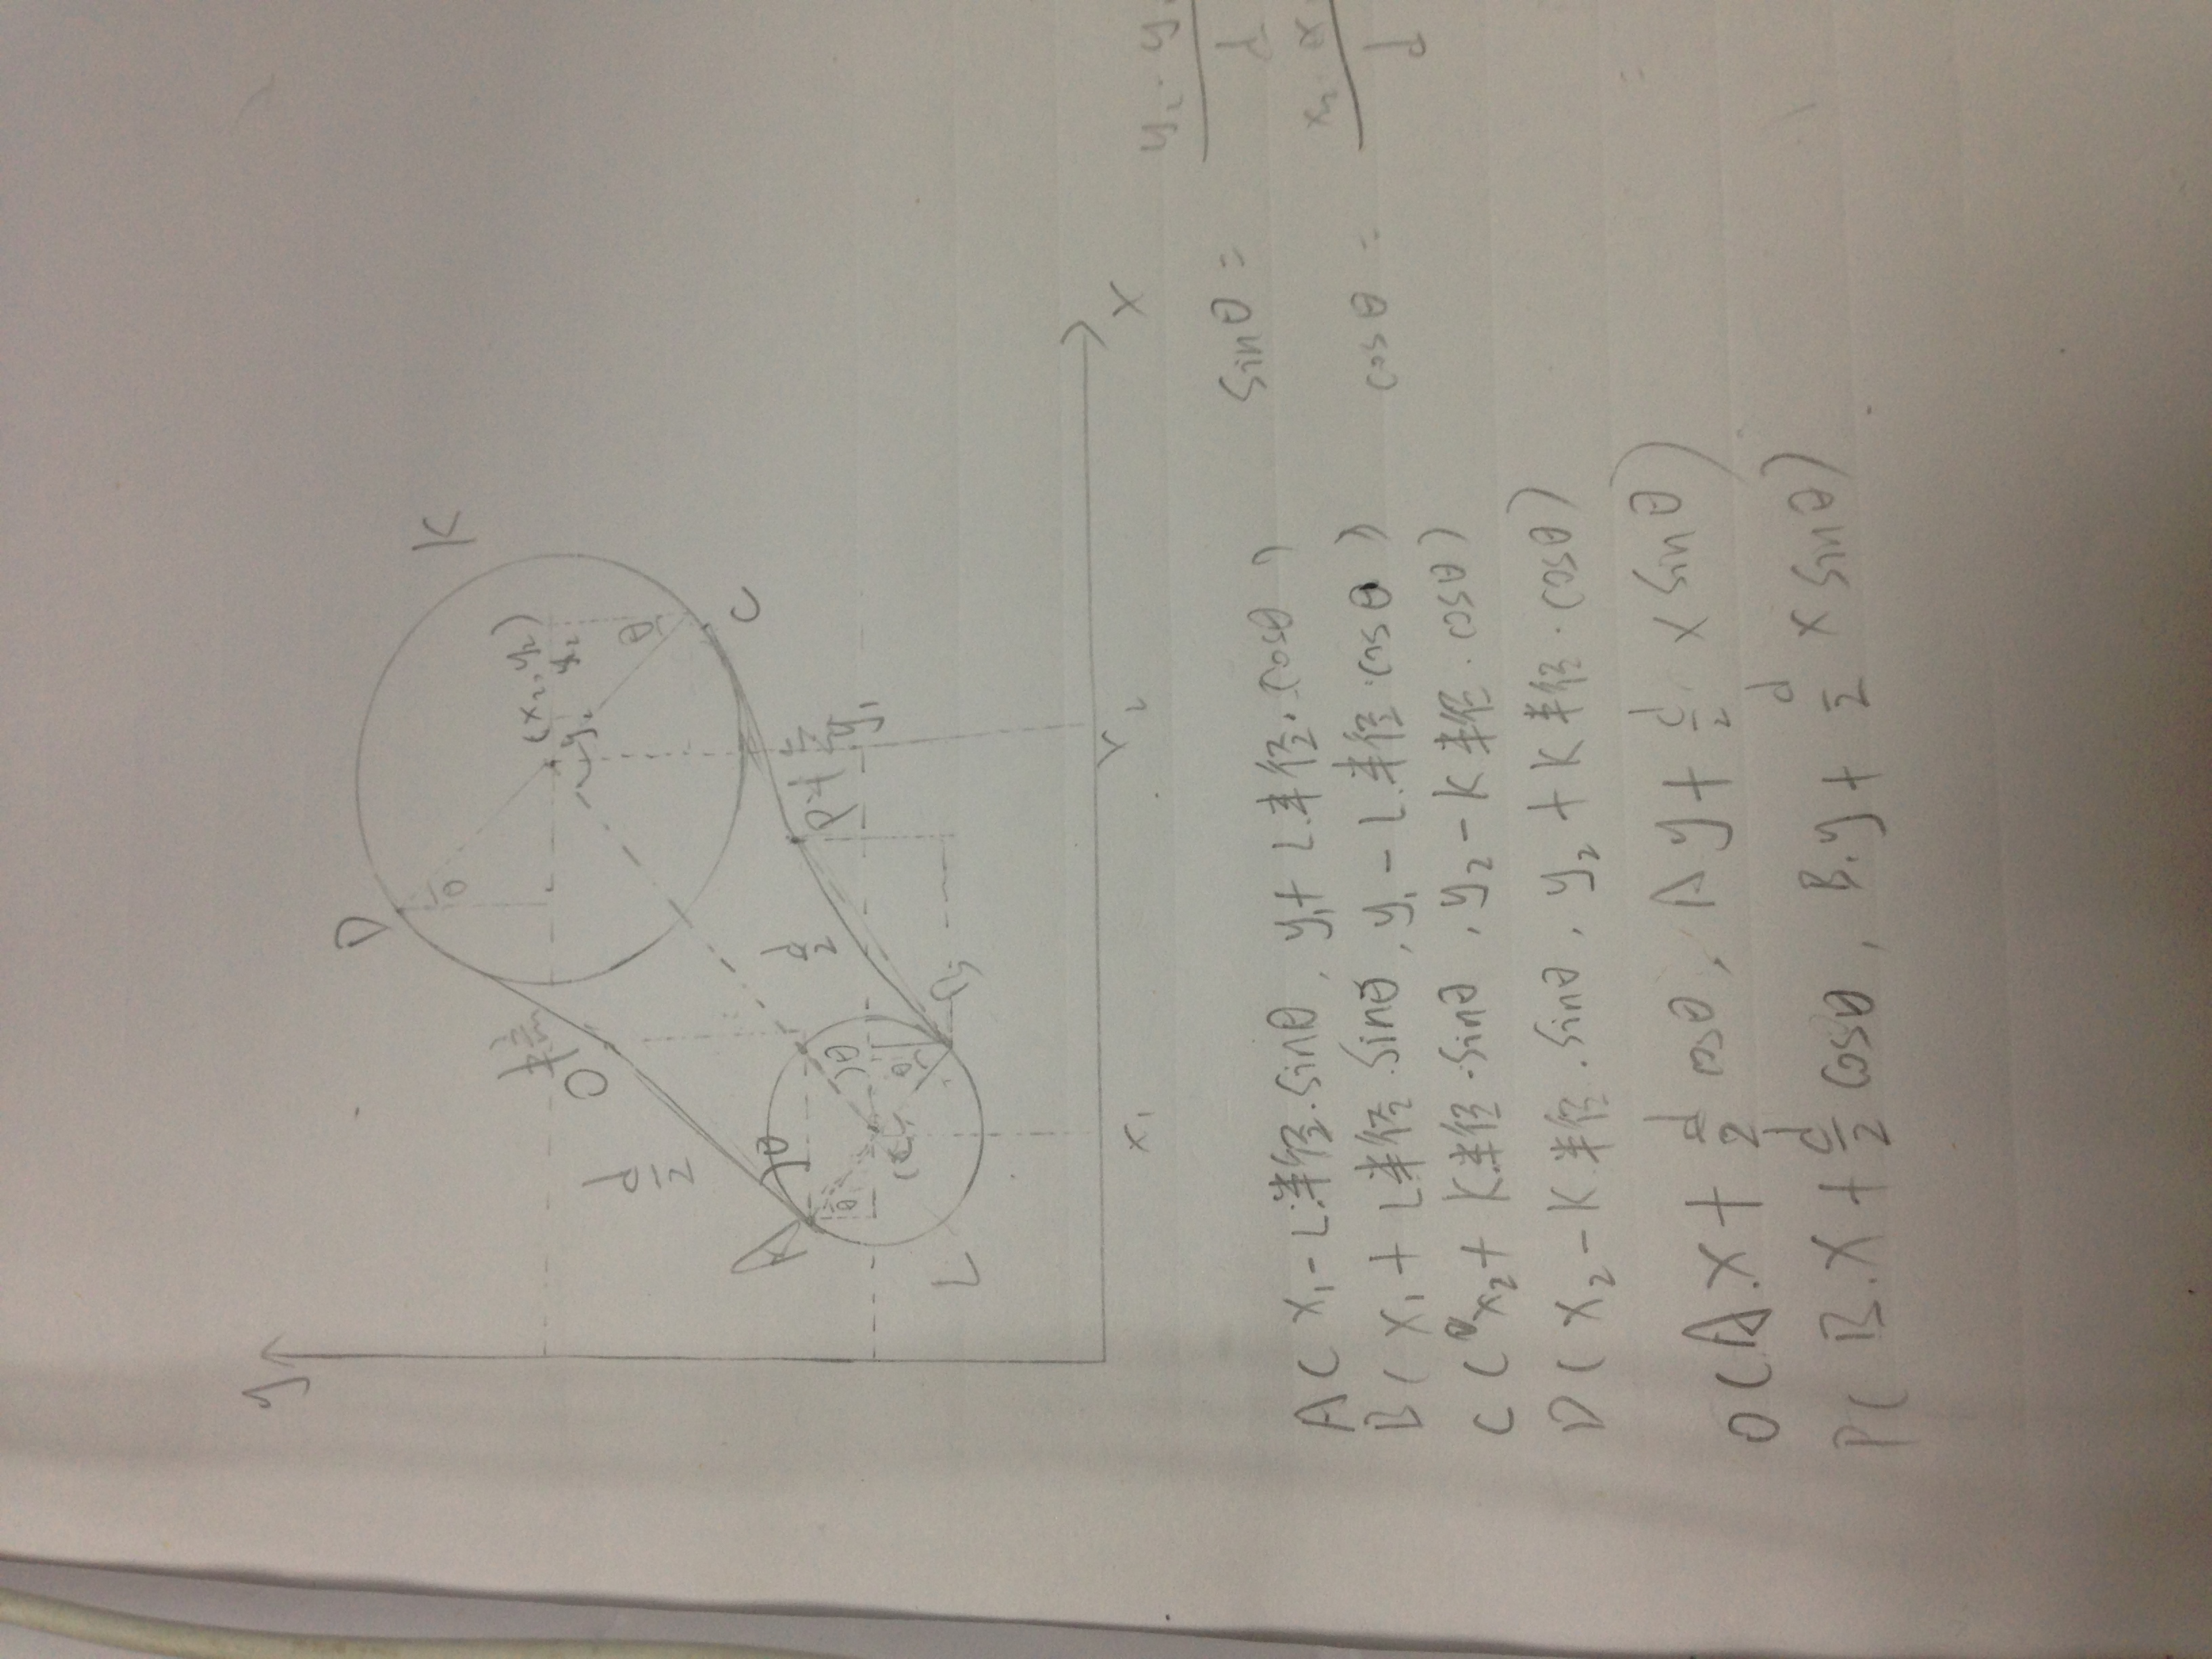 y
D
K
O 中点
(x₂, y₂)
y₂ x₂
d/2
θ
θ
A
θ
C
d/2
θ
θ
P中点
y₁
θ
L
B
x₁
x₂
x
sinθ = y₂ - y₁/d
A( x₁ - L半径.sinθ, y₁ + L半径.cosθ )
cosθ = d
B( x₁ + L半径.sinθ, y₁ - L半径.cosθ )
C( x₂ + K半径.sinθ, y₂ - K半径.cosθ)
D( x₂ - K半径.sinθ, y₂ + K半径.cosθ)
O(A.x + d/2 cosθ, A y + d/2 × sinθ)
P( B.x + d/2 cosθ, B.y + d/2 × sinθ)